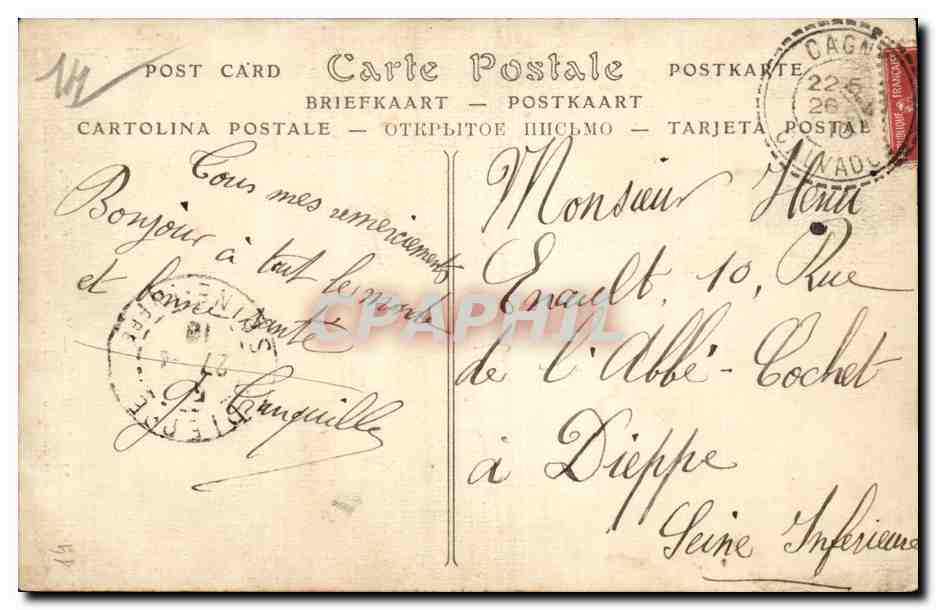 14
POST CARD Carte Postale POSTKARTE
BRIEFKAART — POSTKAART
CARTOLINA POSTALE — ОТКРЫТОЕ ПИСЬМО — TARJETA POSTAL
CAGNY
22:5
26
10
CALVADOS
RÉPUBLIQUE FRANÇAISE
Tous mes remerciements
Bonjour à tout le monde
et bonne santé
CPAPHIL
18
27
DIEPPE
Monsieur Henri
Enault, 10, Rue
de l'Abbé-Cochet
à Dieppe
Seine Inférieure
14